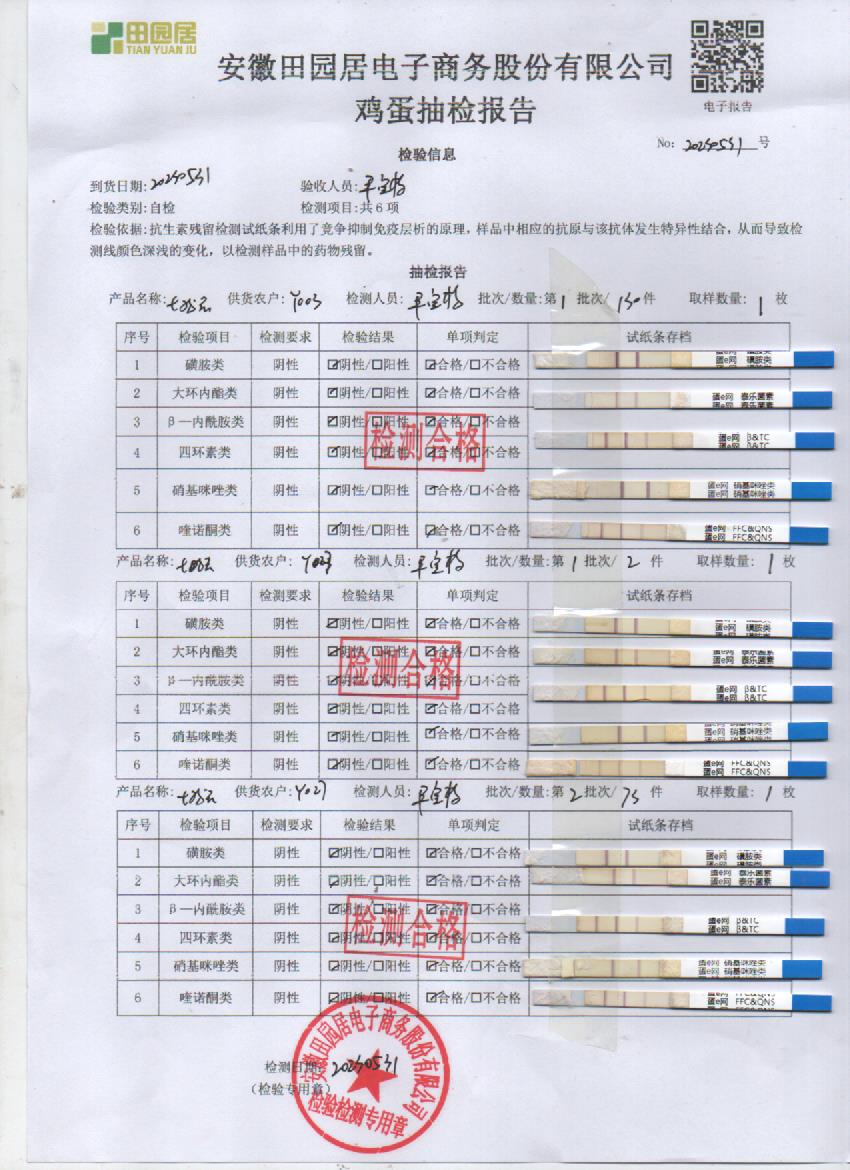 田园居
TIAN YUAN JU
安徽田园居电子商务股份有限公司
鸡蛋抽检报告
电子报告
No: 20240531 号
检验信息
到货日期: 20240531 验收人员:
检验类别: 自检 检测项目: 共6项
检验依据: 抗生素残留检测试纸条利用了竞争抑制免疫层析的原理, 样品中相应的抗原与该抗体发生特异性结合, 从而导致检
测线颜色深浅的变化, 以检测样品中的药物残留。
抽检报告
产品名称: 供货农户: Y003 检测人员: 批次/数量: 第1批次/130件 取样数量: 1 枚
序号 检验项目 检测要求 检验结果 单项判定 试纸条存档
1 磺胺类 阴性 ☑阴性/☐阳性 ☑合格/☐不合格 蛋e网 磺胺类
2 大环内酯类 阴性 ☑阴性/☐阳性 ☑合格/☐不合格 蛋e网 泰乐菌素
3 β一内酰胺类 阴性 ☑阴性/☐阳性 ☑合格/☐不合格 蛋e网 β&TC
4 四环素类 阴性 ☑阴性/☐阳性 ☑合格/☐不合格
5 硝基咪唑类 阴性 ☑阴性/☐阳性 ☑合格/☐不合格 蛋e网 硝基咪唑类
6 喹诺酮类 阴性 ☑阴性/☐阳性 ☑合格/☐不合格 蛋e网 FFC&QNS
检测合格
产品名称: 供货农户: 检测人员: 批次/数量: 第1批次/2件 取样数量: 1 枚
序号 检验项目 检测要求 检验结果 单项判定 试纸条存档
1 磺胺类 阴性 ☑阴性/☐阳性 ☑合格/☐不合格 蛋e网 磺胺类
2 大环内酯类 阴性 ☑阴性/☐阳性 ☑合格/☐不合格 蛋e网 泰乐菌素
3 β一内酰胺类 阴性 ☑阴性/☐阳性 ☑合格/☐不合格 蛋e网 β&TC
4 四环素类 阴性 ☑阴性/☐阳性 ☑合格/☐不合格
5 硝基咪唑类 阴性 ☑阴性/☐阳性 ☑合格/☐不合格 蛋e网 硝基咪唑类
6 喹诺酮类 阴性 ☑阴性/☐阳性 ☑合格/☐不合格 蛋e网 FFC&QNS
检测合格
产品名称: 供货农户: Y027 检测人员: 批次/数量: 第2批次/75件 取样数量: 1 枚
序号 检验项目 检测要求 检验结果 单项判定 试纸条存档
1 磺胺类 阴性 ☑阴性/☐阳性 ☑合格/☐不合格 蛋e网 磺胺类
2 大环内酯类 阴性 ☑阴性/☐阳性 ☑合格/☐不合格 蛋e网 泰乐菌素
3 β一内酰胺类 阴性 ☑阴性/☐阳性 ☑合格/☐不合格 蛋e网 β&TC
4 四环素类 阴性 ☑阴性/☐阳性 ☑合格/☐不合格
5 硝基咪唑类 阴性 ☑阴性/☐阳性 ☑合格/☐不合格 蛋e网 硝基咪唑类
6 喹诺酮类 阴性 ☑阴性/☐阳性 ☑合格/☐不合格 蛋e网 FFC&QNS
检测合格
检测日期: 20240531
(检验专用章)
安徽田园居电子商务股份有限公司
检验检测专用章